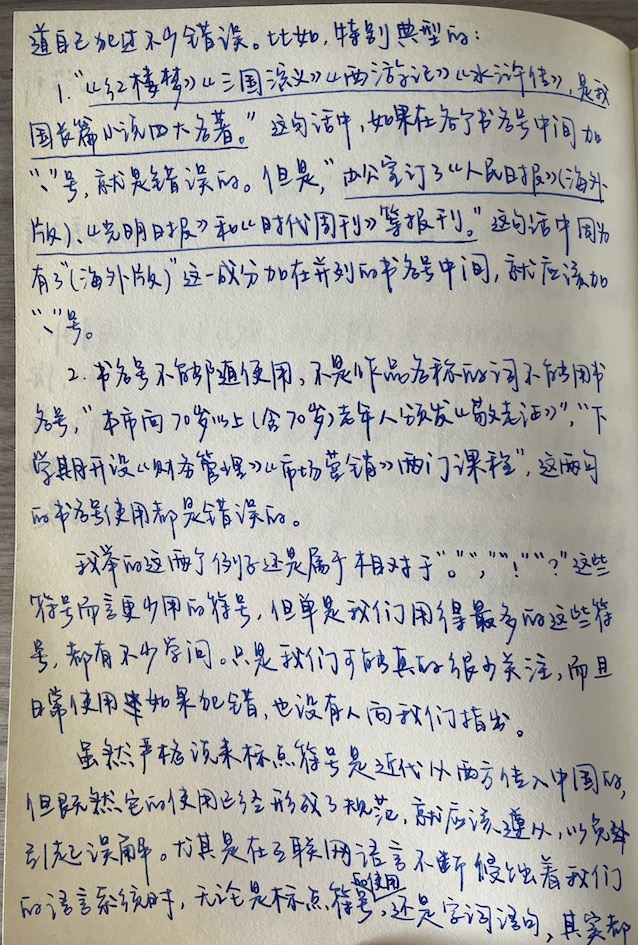 道自己犯过不少错误。比如,特别典型的:
1.“《红楼梦》《三国演义》《西游记》《水浒传》,是我
国长篇小说四大名著。”这句话中,如果在各个书名号中间加
“、”号,就是错误的。但是,“办公室订了《人民日报》(海外
版)、《光明日报》和《时代周刊》等报刊。”这句话中因为
有了“(海外版)”这一成分加在并列的书名号中间,就应该加
“、”号。
2. 书名号不能随便使用,不是作品名称的词不能用书
名号,“本市向70岁以上(含70岁)老年人颁发《敬老证》”,“下
学期开设《财务管理》《市场营销》两门课程”,这两句
的书名号使用都是错误的。
我举的这两个例子还是属于相对于“。”“,”“!”“?”这些
符号而言更少用的符号,但单是我们用得最多的这些符
号,都有不少学问。只是我们可能真的很少关注,而且
日常使用如果犯错,也没有人向我们指出。
虽然严格说来标点符号是近代从西方传入中国的,
但既然它的使用已经形成了规范,就应该遵从,以免
引起误解。尤其是在互联网语言不断侵蚀着我们
的语言系统时,无论是标点符号使用,还是字词语句,其实都